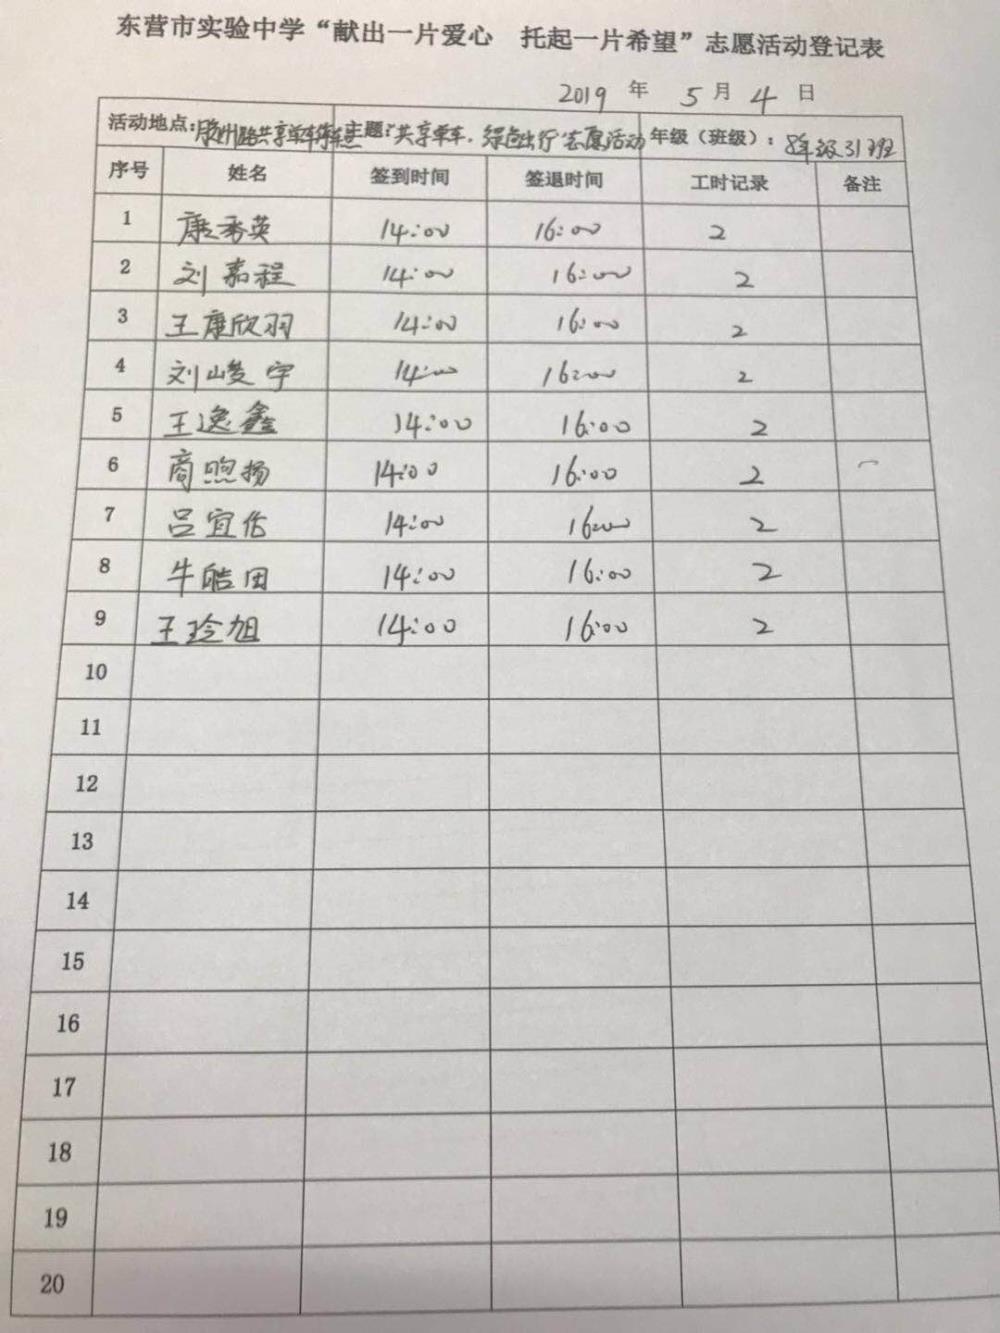 东营市实验中学“献出一片爱心 托起一片希望”志愿活动登记表
2019 年 5 月 4 日
活动地点：胶州路共享单车停车点 主题：“共享单车，绿色出行”志愿活动 年级（班级）：8年级31班
序号 姓名 签到时间 签退时间 工时记录 备注
1 康秀英 14:00 16:00 2
2 刘嘉程 14:00 16:00 2
3 王康欣羽 14:00 16:00 2
4 刘峻宇 14:00 16:00 2
5 王逸鑫 14:00 16:00 2
6 商煦扬 14:00 16:00 2
7 吕宜佑 14:00 16:00 2
8 牛皓田 14:00 16:00 2
9 王玲旭 14:00 16:00 2
10
11
12
13
14
15
16
17
18
19
20